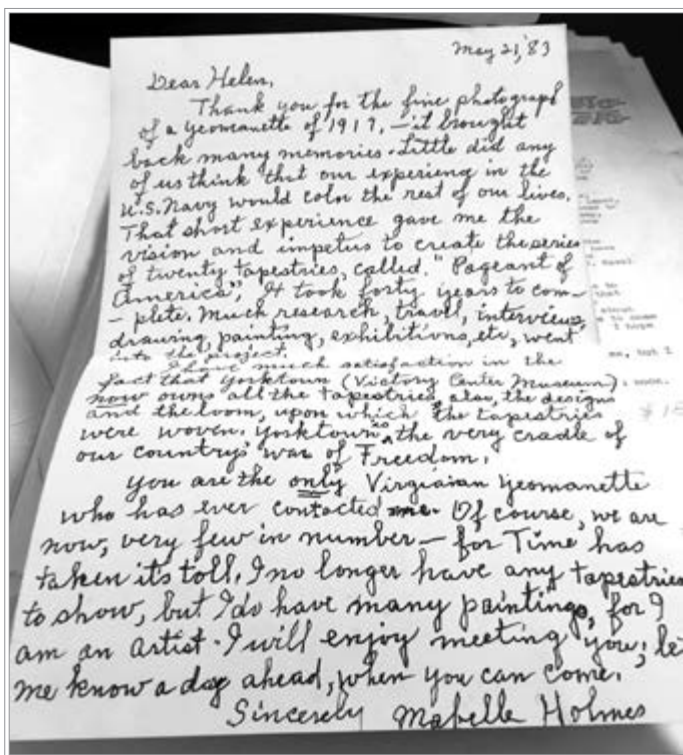 May 21, '83
Dear Helen,
Thank you for the fine photograph
of a Yeomanette of 1917, — it brought
back many memories. Little did any
of us think that our experience in the
U.S. Navy would color the rest of our lives.
That short experience gave me the
vision and impetus to create the series
of twenty tapestries, called "Pageant of
America", It took forty years to com-
- plete. Much research, travel, interviews,
drawing, painting, exhibitions, etc, went
into the project.
I have much satisfaction in the
fact that Yorktown (Victory Center Museum)
now owns all the tapestries, also, the designs
and the loom, upon which the tapestries
were woven. Yorktown is the very cradle of
our country's war of Freedom.
You are the only Virginian Yeomanette
who has ever contacted me. Of course, we are
now, very few in number — for Time has
taken its toll. I no longer have any tapestries
to show, but I do have many paintings, for I
am an artist. I will enjoy meeting you; let
me know a day ahead, when you can come.
Sincerely Mabelle Holmes